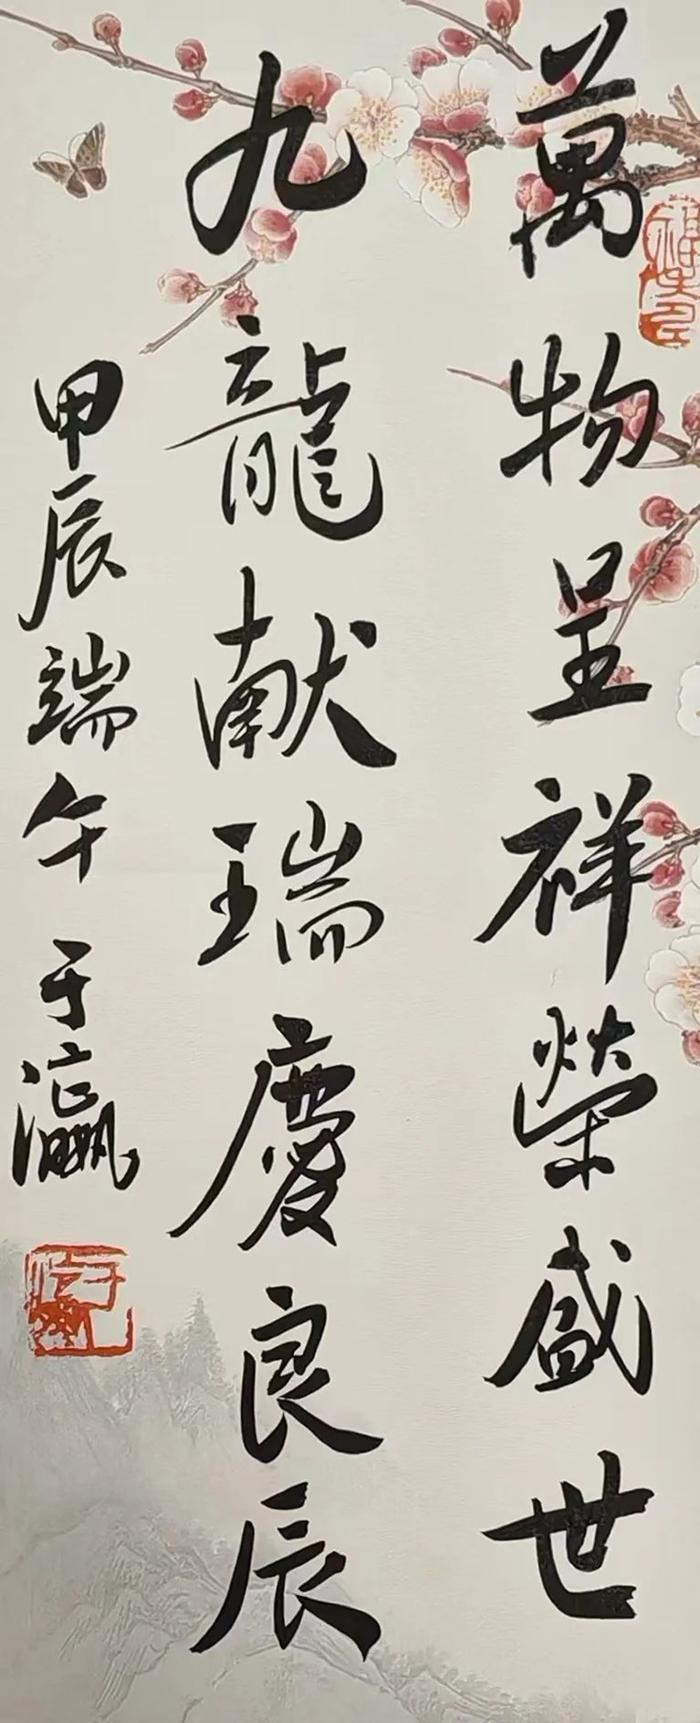 萬物呈祥榮盛世
九龍献瑞慶良辰
甲辰端午 于瀛